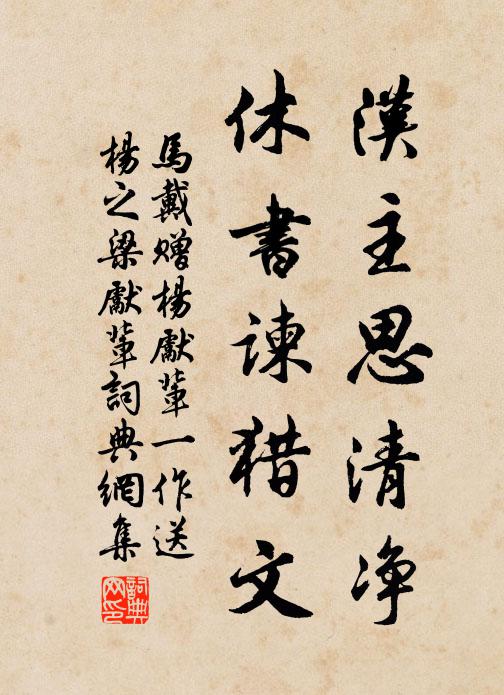 漢主思清净
休書諫猎文
馬戴贈楊獻輩一作送
楊之梁獻輩詞典網集
詞典网印